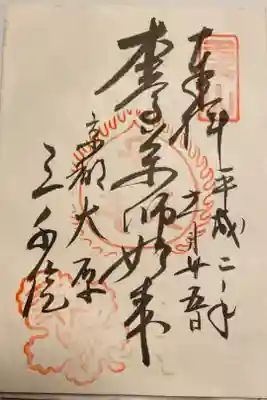 奉拝 平成二十年
十一月廿五日
薬師如来
京都大原
三千院